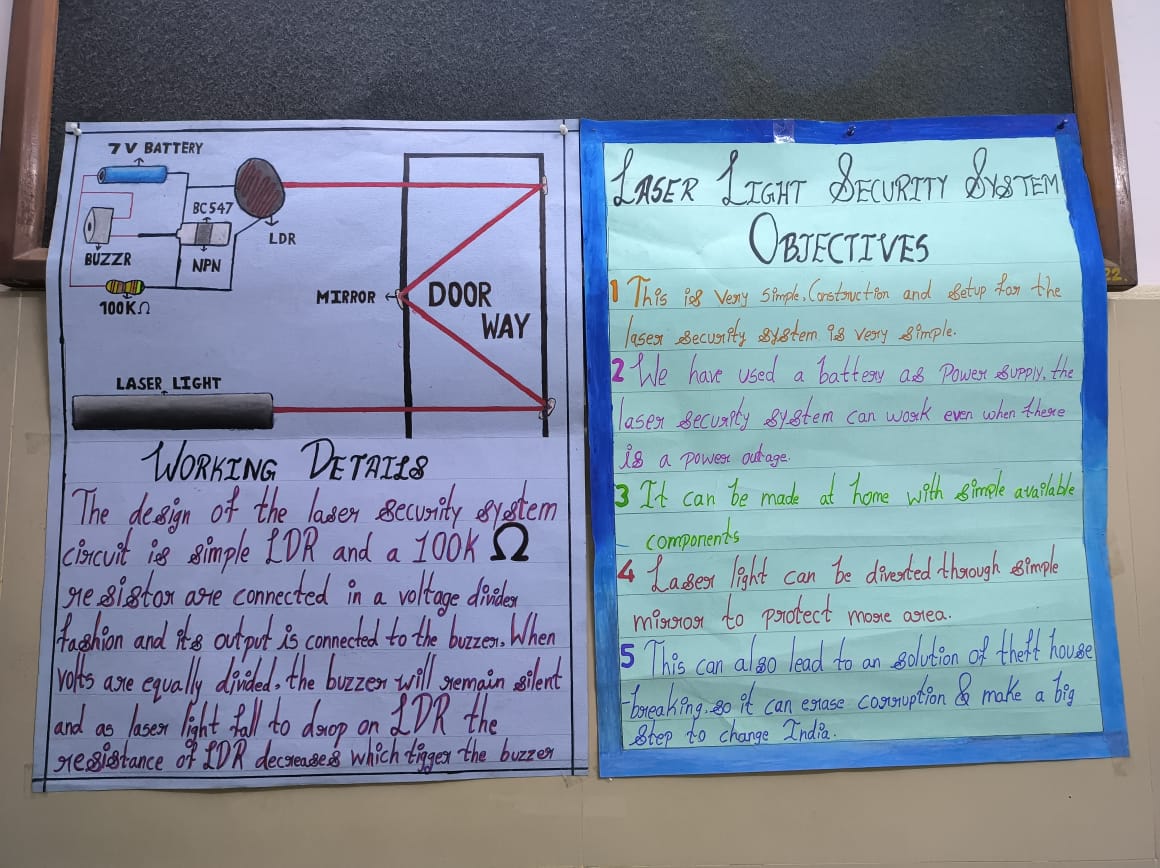 7 V BATTERY
BC547
LDR
BUZZR
NPN
100KΩ
MIRROR
DOOR
WAY
LASER LIGHT
WORKING DETAILS
The design of the laser security system
circuit is simple LDR and a 100K Ω
resistor are connected in a voltage divider
fashion and its output is connected to the buzzer. When
volts are equally divided, the buzzer will remain silent
and as laser light fall to drop on LDR the
resistance of LDR decreases which tigger the buzzer
LASER LIGHT SECURITY SYSTEM
OBJECTIVES
1 This is very simple, Construction and setup for the
laser security system is very simple.
2 We have used a battery as power supply, the
laser security system can work even when there
is a power outage.
3 It can be made at home with simple available
components
4 Laser light can be diverted through simple
mirror to protect more area.
5 This can also lead to an solution of theft house
-breaking. so it can erase corruption & make a big
step to change India.
22